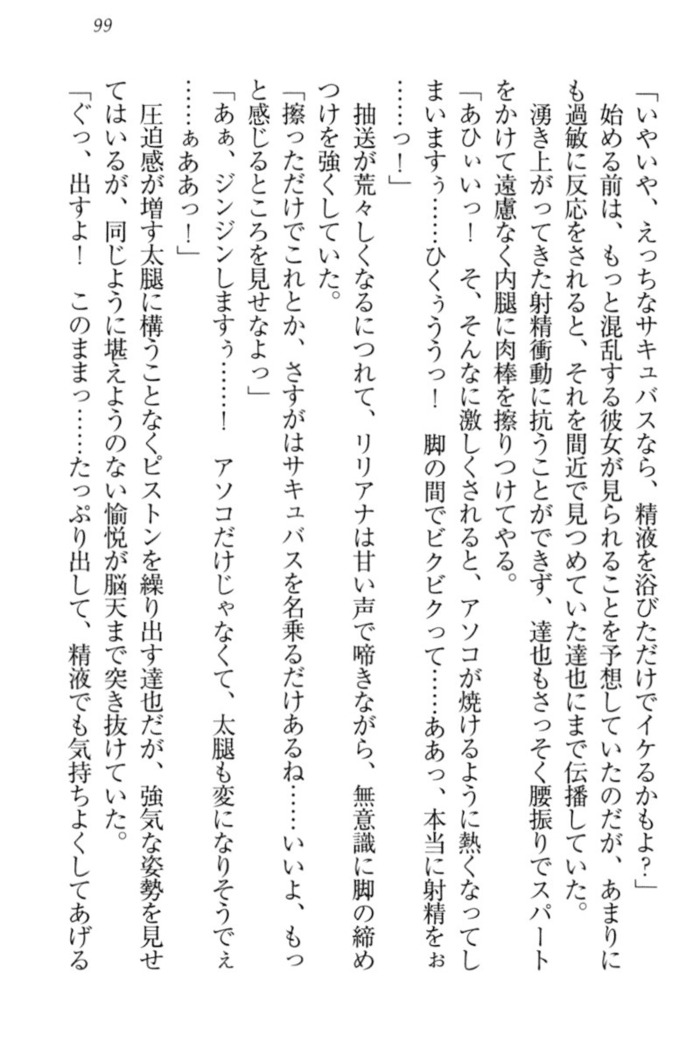 99
「いやいや、えっちなサキュバスなら、精液を浴びただけでイケるかもよ？」
始める前は、もっと混乱する彼女が見られることを予想していたのだが、あまりに
も過敏に反応をされると、それを間近で見つめていた達也にまで伝播していた。
湧き上がってきた射精衝動に抗うことができず、達也もさっそく腰振りでスパート
をかけて遠慮なく内腿に肉棒を擦りつけてやる。
「あひぃいっ！　そ、そんなに激しくされると、アソコが焼けるように熱くなってし
まいますぅ……ひくぅううっ！　脚の間でビクビクって……ああっ、本当に射精をぉ
……っ！」
抽送が荒々しくなるにつれて、リリアナは甘い声で啼きながら、無意識に脚の締め
つけを強くしていた。
「擦っただけでこれとか、さすがはサキュバスを名乗るだけあるね……いいよ、もっ
と感じるところを見せなよっ」
「あぁ、ジンジンしますぅ……！　アソコだけじゃなくて、太腿も変になりそうでぇ
……ぁああっ！」
圧迫感が増す太腿に構うことなくピストンを繰り出す達也だが、強気な姿勢を見せ
てはいるが、同じように堪えようのない愉悦が脳天まで突き抜けていた。
「ぐっ、出すよ！　このままっ……たっぷり出して、精液でも気持ちよくしてあげる